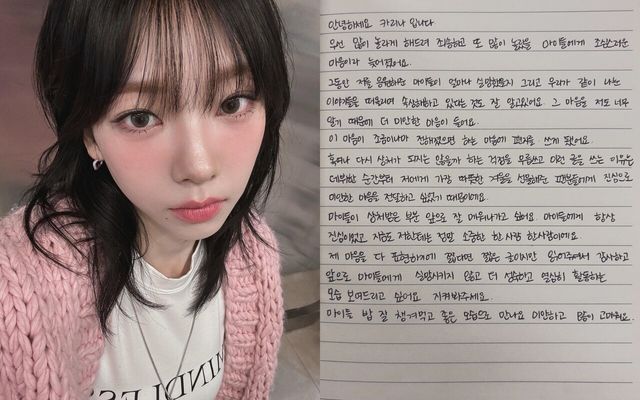 안녕하세요 카리나 입니다.
우선 많이 놀라게 해드려 죄송하고 또 많이 놀랐을 마이들에게 조심스러운
마음이라 늦어졌어요.
그동안 저를 응원해준 마이들이 얼마나 실망했을지 그리고 우리가 같이 나눈
이야기들을 떠올리며 속상해하고 있다는 것도 잘 알고있어요. 그 마음을 저도 너무
알기 때문에 더 미안한 마음이 들어요.
이 마음이 조금이나마 전해졌으면 하는 마음에 편지를 쓰게 됐어요.
혹여나 다시 상처가 되지는 않을까 하는 걱정을 무릅쓰고 이런 글을 쓰는 이유는
데뷔한 순간부터 저에게 가장 따뜻한 겨울을 선물해준 팬분들에게 진심으로
미안한 마음을 전달하고 싶었기 때문이에요.
마이들이 상처받은 부분 앞으로 잘 메워나가고 싶어요. 마이들에게 항상
진심이었고 지금도 저한테는 정말 소중한 한 사람 한사람이에요.
제 마음을 다 표현하기에 짧다면 짧은 글이지만 읽어주셔서 감사하고
앞으로 마이들에게 실망시키지 않고 더 성숙하고 열심히 활동하는
모습 보여드리고 싶어요. 지켜봐주세요.
마이들 밥 잘 챙겨먹고 좋은 모습으로 만나요 미안하고 많이 고마워요.
MINDLESS